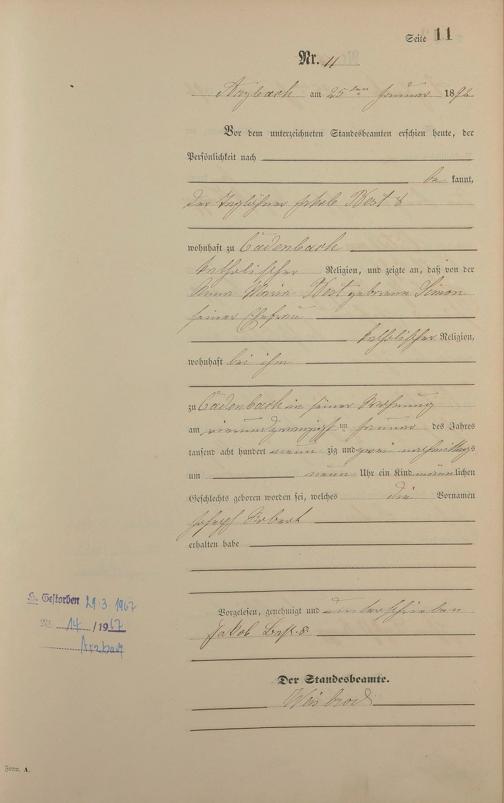 Seite 11
Nr. 11
Arzbach am 25ten Januar 1892
Vor dem unterzeichneten Standesbeamten erschien heute, der
Persönlichkeit nach
be kannt,
der Taglöhner Jakob West 8
wohnhaft zu Cadenbach
katholischer Religion, und zeigte an, daß von der
Anna Maria West geborene Simon
seiner Ehefrau
katholischer Religion,
wohnhaft bei ihm
zu Cadenbach in seiner Wohnung
am vierundzwanzigsten Januar des Jahres
tausend acht hundert neun zig und zwei nachmittags
um neun Uhr ein Kind männlichen
Geschlechts geboren worden sei, welches die Vornamen
Joseph
erhalten habe
Vorgelesen, genehmigt und unterschrieben
Jakob
Der Standesbeamte.
Gestorben 29.3 1967
Nr. 14 / 1967
Arzbach
Form. A.